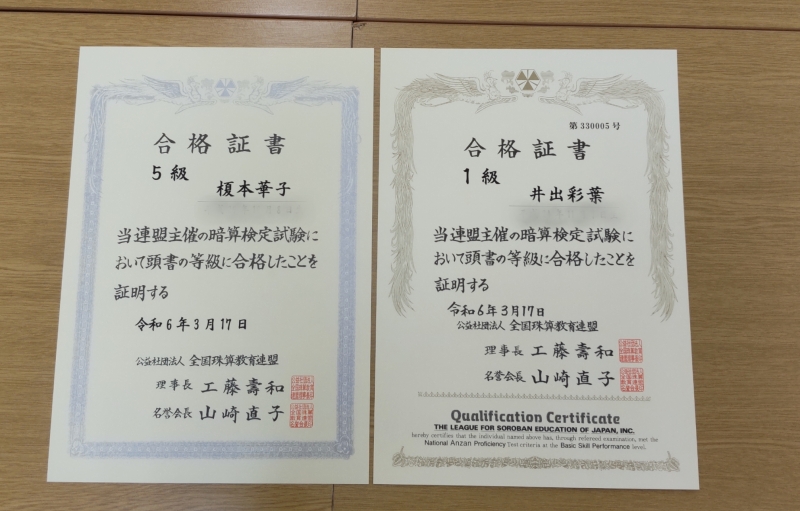 合格証書
5級
榎本華子
当連盟主催の暗算検定試験に
おいて頭書の等級に合格したことを
証明する
令和6年3月17日
公益社団法人 全国珠算教育連盟
理事長 工藤壽和
名誉会長 山崎直子
第330005号
合格証書
1級
井出彩葉
当連盟主催の暗算検定試験に
おいて頭書の等級に合格したことを
証明する
令和6年3月17日
公益社団法人 全国珠算教育連盟
理事長 工藤壽和
名誉会長 山崎直子
Qualification Certificate
THE LEAGUE FOR SOROBAN EDUCATION OF JAPAN, INC.
hereby certifies that the individual named above has, through refereed examination, met the
National Anzan Proficiency Test criteria at the Basic Skill Performance level.